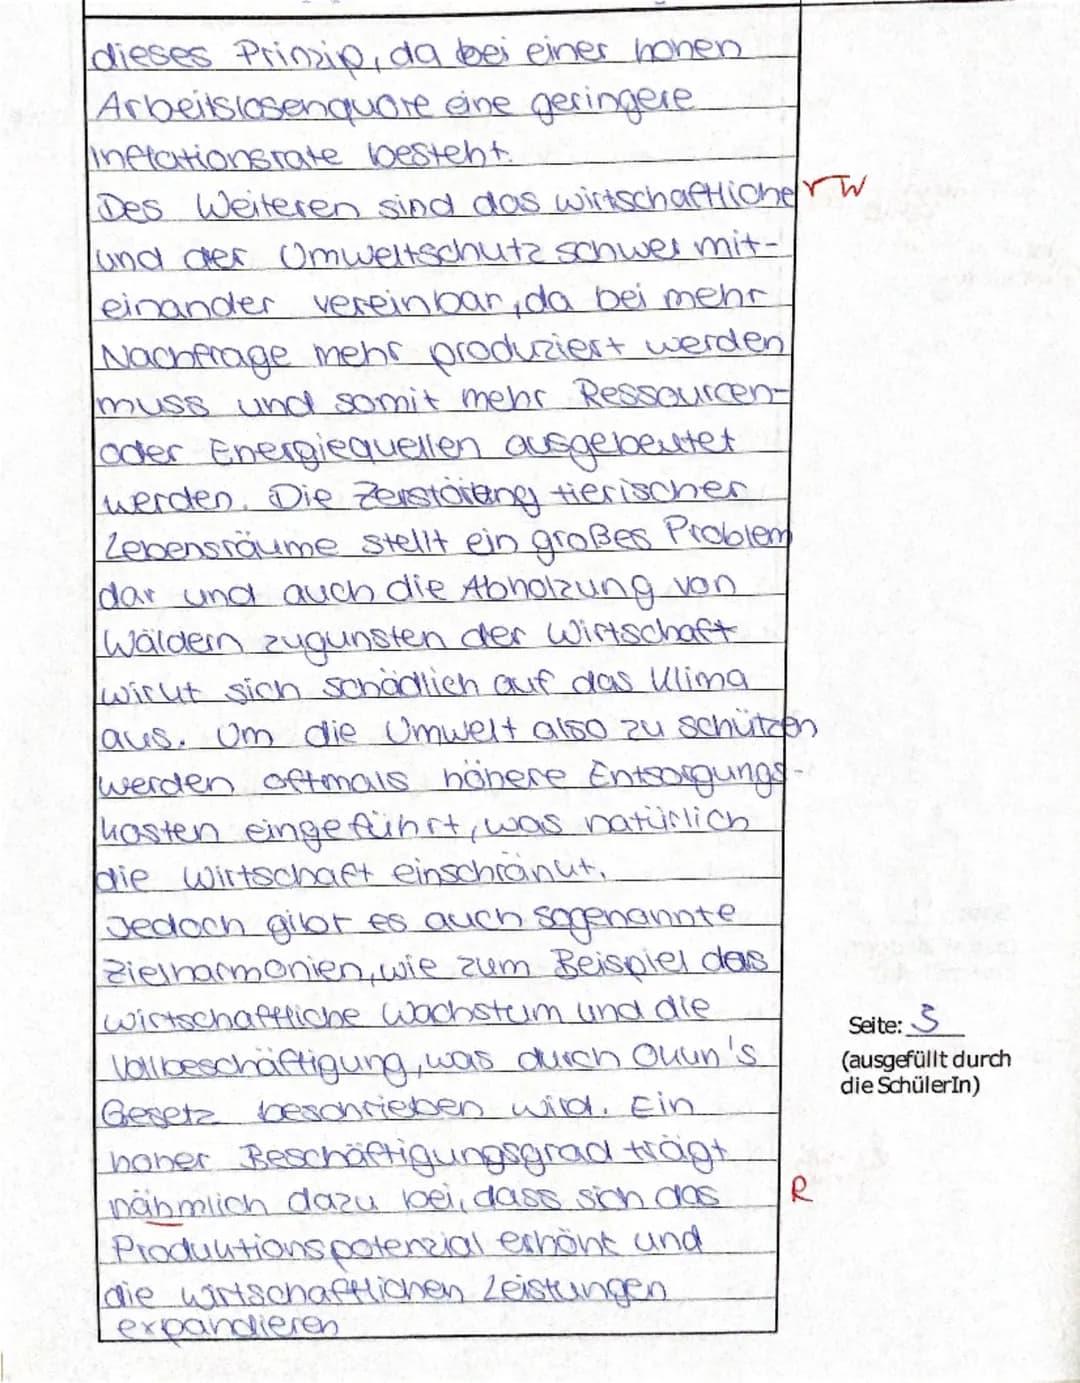 dieses Prinzip, da bei einer hohen
Arbeitslosenquote eine geringere
Inflationsrate besteht.
Des Weiteren sind das wirtschaftliche r W
und der Umweltschutz schwer mit-
einander vereinbar, da bei mehr
Nachfrage mehr produziert werden
muss und somit mehr Ressourcen-
oder Energiequellen ausgebeutet
werden. Die Zerstörung tierischer
Lebensräume stellt ein großes Problem
dar und auch die Abholzung von
Wäldern zugunsten der Wirtschaft
wirkt sich schädlich auf das Klima
aus. Um die Umwelt also zu schützen
werden oftmals höhere Entsorgungs-
kosten eingeführt, was natürlich
die Wirtschaft einschränkt.
Jedoch gibt es auch sogenannte
Zielharmonien, wie zum Beispiel das
wirtschaftliche Wachstum und die
Vollbeschäftigung, was durch Okun's
Gesetz beschrieben wird. Ein
hoher Beschäftigungsgrad trägt
nähmlich dazu bei, dass sich das R
Produktionspotenzial erhöht und
die wirtschaftlichen Leistungen
expandieren
Seite: 3
(ausgefüllt durch
die SchülerIn)